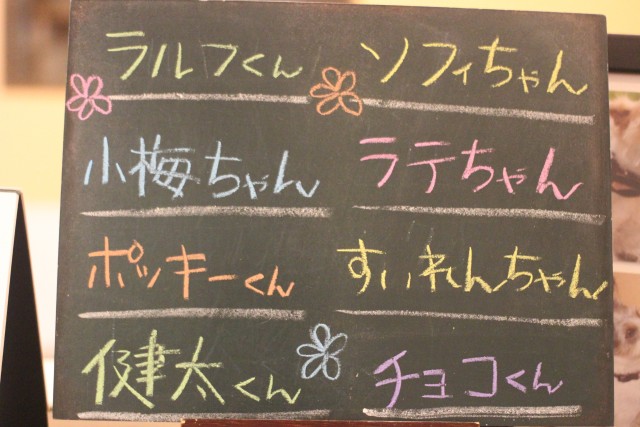 ラルフくん
ソフィちゃん
小梅ちゃん
ラテちゃん
ポッキーくん
すいれんちゃん
健太くん
チョコくん